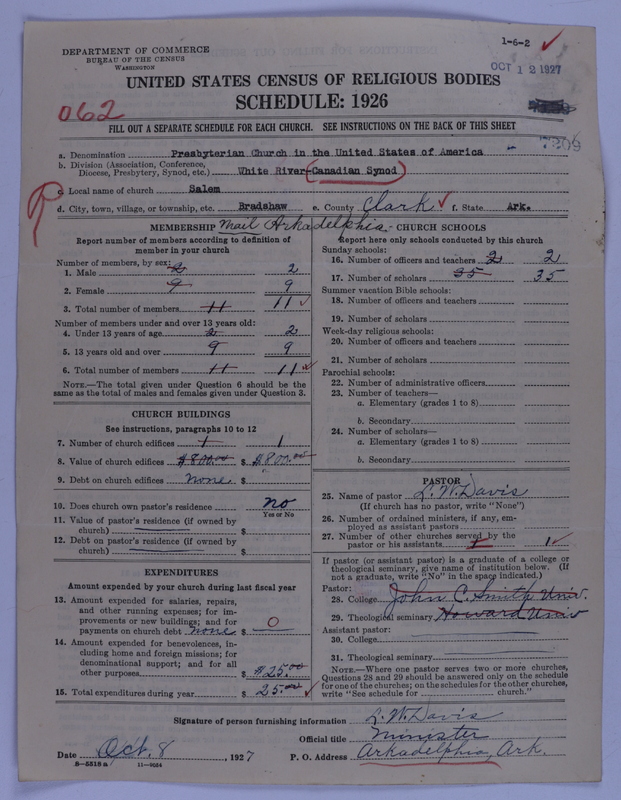 DEPARTMENT OF COMMERCE
BUREAU OF THE CENSUS
WASHINGTON
1-6-2 ✓
OCT 12 1927
UNITED STATES CENSUS OF RELIGIOUS BODIES
SCHEDULE: 1926
062
FILL OUT A SEPARATE SCHEDULE FOR EACH CHURCH. SEE INSTRUCTIONS ON THE BACK OF THIS SHEET
7209
a. Denomination Presbyterian Church in the United States of America
b. Division (Association, Conference, Diocese, Presbytery, Synod, etc.) White River-Canadian Synod
c. Local name of church Salem
d. City, town, village, or township, etc. Bradshaw e. County Clark ✓ f. State Ark.
Mail Arkadelphia.
MEMBERSHIP
Report number of members according to definition of
member in your church
Number of members, by sex:
1. Male 2 2
2. Female 9 9
3. Total number of members 11 11 ✓
Number of members under and over 13 years old:
4. Under 13 years of age 2 2
5. 13 years old and over 9 9
6. Total number of members 11 11
NOTE.—The total given under Question 6 should be the
same as the total of males and females given under Question 3.
CHURCH BUILDINGS
See instructions, paragraphs 10 to 12
7. Number of church edifices 1 1
8. Value of church edifices $800.00 $ $800.00
9. Debt on church edifices none $
10. Does church own pastor's residence no
Yes or No
11. Value of pastor's residence (if owned by
church) $
12. Debt on pastor's residence (if owned by
church) $
EXPENDITURES
Amount expended by your church during last fiscal year
13. Amount expended for salaries, repairs,
and other running expenses; for im-
provements or new buildings; and for
payments on church debt none $ 0
14. Amount expended for benevolences, in-
cluding home and foreign missions; for
denominational support; and for all
other purposes $25.00
15. Total expenditures during year $ 25.00 ✓
CHURCH SCHOOLS
Report here only schools conducted by this church
Sunday schools:
16. Number of officers and teachers 2 2
17. Number of scholars 35 35
Summer vacation Bible schools:
18. Number of officers and teachers
19. Number of scholars
Week-day religious schools:
20. Number of officers and teachers
21. Number of scholars
Parochial schools:
22. Number of administrative officers
23. Number of teachers—
a. Elementary (grades 1 to 8)
b. Secondary
24. Number of scholars—
a. Elementary (grades 1 to 8)
b. Secondary
PASTOR
25. Name of pastor L. W. Davis
(If church has no pastor, write "None")
26. Number of ordained ministers, if any, em-
ployed as assistant pastors
27. Number of other churches served by the
pastor or his assistants 1 1 ✓
If pastor (or assistant pastor) is a graduate of a college or
theological seminary, give name of institution below. (If
not a graduate, write "No" in the space indicated.)
Pastor:
28. College John C. Smith Univ.
29. Theological seminary Howard Univ
Assistant pastor:
30. College
31. Theological seminary
NOTE.—Where one pastor serves two or more churches,
Questions 28 and 29 should be answered only on the schedule
for one of the churches; on the schedules for the other churches,
write "See schedule for church."
Signature of person furnishing information L. W. Davis
Official title Minister
Date Oct. 8, 1927 P. O. Address Arkadelphia, Ark.
8-5518a 11-9024